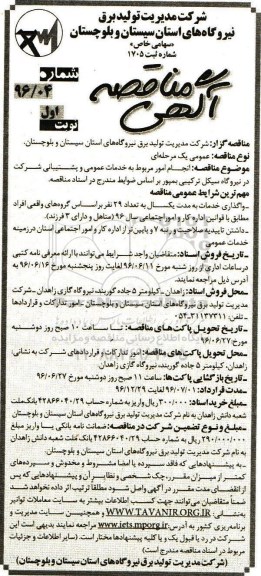 شرکت مدیریت تولید برق
نیروگاه‌های استان سیستان و بلوچستان
«سهامی خاص»
شماره ثبت ۱۷۰۵
آگهی مناقصه
شماره
۹۶/۰۴
نوبت
اول
مناقصه گزار: شرکت مدیریت تولید برق نیروگاه‌های استان سیستان و بلوچستان.
نوع مناقصه: عمومی یک مرحله‌ای
موضوع مناقصه: انجام امور مربوط به خدمات عمومی و پشتیبانی شرکت
در نیروگاه سیکل ترکیبی بمپور بر اساس ضوابط مندرج در اسناد مناقصه.
مهم ترین شرایط عمومی مناقصه
ـ واگذاری خدمات به مدت یکسال به تعداد ۲۹ نفر براساس گروه‌های واقعی افراد
مطابق با قوانین اداره کار و امور اجتماعی سال ۹۶ (متاهل و دارای ۳ فرزند).
ـ داشتن تاییدیه صلاحیت و رتبه ۷ و پایین تر از اداره کار و امور اجتماعی استان در زمینه
خدمات عمومی
ـ تاریخ فروش اسناد: متقاضیان واجد شرایط می‌توانند با ارائه معرفی نامه کتبی
در ساعات اداری از روز شنبه مورخ ۹۶/۰۶/۱۱ لغایت روز پنجشنبه مورخ ۹۶/۰۶/۱۶ به
آدرس ذیل مراجعه نمایند.
ـ محل فروش اسناد: زاهدان ـ کیلومتر ۵ جاده گوربند، نیروگاه گازی زاهدان ـ شرکت
مدیریت تولید برق نیروگاه‌های استان سیستان و بلوچستان ـ امور تدارکات و قراردادها
ـ تلفن: ۳۱۱۳۷۳۱۱-۰۵۴
ـ تاریخ تحویل پاکت های مناقصه: تا ساعت ۱۰ صبح روز دوشنبه
مورخ ۹۶/۰۶/۲۷
ـ محل تحویل پاکت‌های مناقصه: امور تدارکات و قراردادهای شرکت به نشانی:
زاهدان، کیلومتر ۵ جاده گوربند، نیروگاه گازی زاهدان
ـ تاریخ بازگشایی پاکت‌ها: ساعت ۱۱ صبح روز دوشنبه مورخ ۹۶/۰۶/۲۷
ـ مدت قرارداد: از ۹۶/۰۷/۰۱ لغایت
ـ مبلغ خرید اسناد: ۳۰۰/۰۰۰ ریال واریز به شماره حساب ۴۲۸۶۶۰۴۰/۲۹ بانک ملت
شعبه دانش زاهدان به نام شرکت مدیریت تولید برق نیروگاه‌های استان سیستان و بلوچستان
ـ مبلغ و نوع تضمین شرکت در مناقصه: ضمانت نامه بانکی یا واریز مبلغ
۲۹۰/۰۰۰/۰۰۰ ریال به شماره حساب ۴۲۸۶۶۰۴۰/۲۹ بانک ملت شعبه دانش زاهدان
به نام شرکت مدیریت تولید برق نیروگاه‌های استان سیستان و بلوچستان
ـ به پیشنهادهایی که فاقد سپرده یا امضا مشروط و مخدوش و سپرده‌های
کمتر از میزان مقرر، چک شخصی و نظایر آن و پیشنهادهایی که پس
از انقضای مدت مقرر در آگهی واصل شود مطلقاً ترتیب اثر داده نخواهد شد.
ضمناً متقاضیان می‌توانند جهت کسب اطلاعات بیشتر به سایت معاملات توانیر
به نشانی: WWW.TAVANIR.ORG و همچنین سایت مدیریت و
برنامه‌ریزی کشور به آدرس: www.iets.mporg.ir مراجعه نمایند بدیهی است این
شرکت در رد یا قبول یک و یا کلیه پیشنهادها مختار است. (سایر اطلاعات و جزئیات
مربوط در اسناد مناقصه مندرج است)
(شرکت مدیریت تولید برق نیروگاه‌های استان سیستان و بلوچستان)